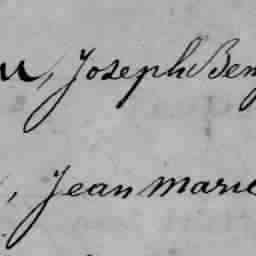 u, Joseph Benj
, Jean Marie